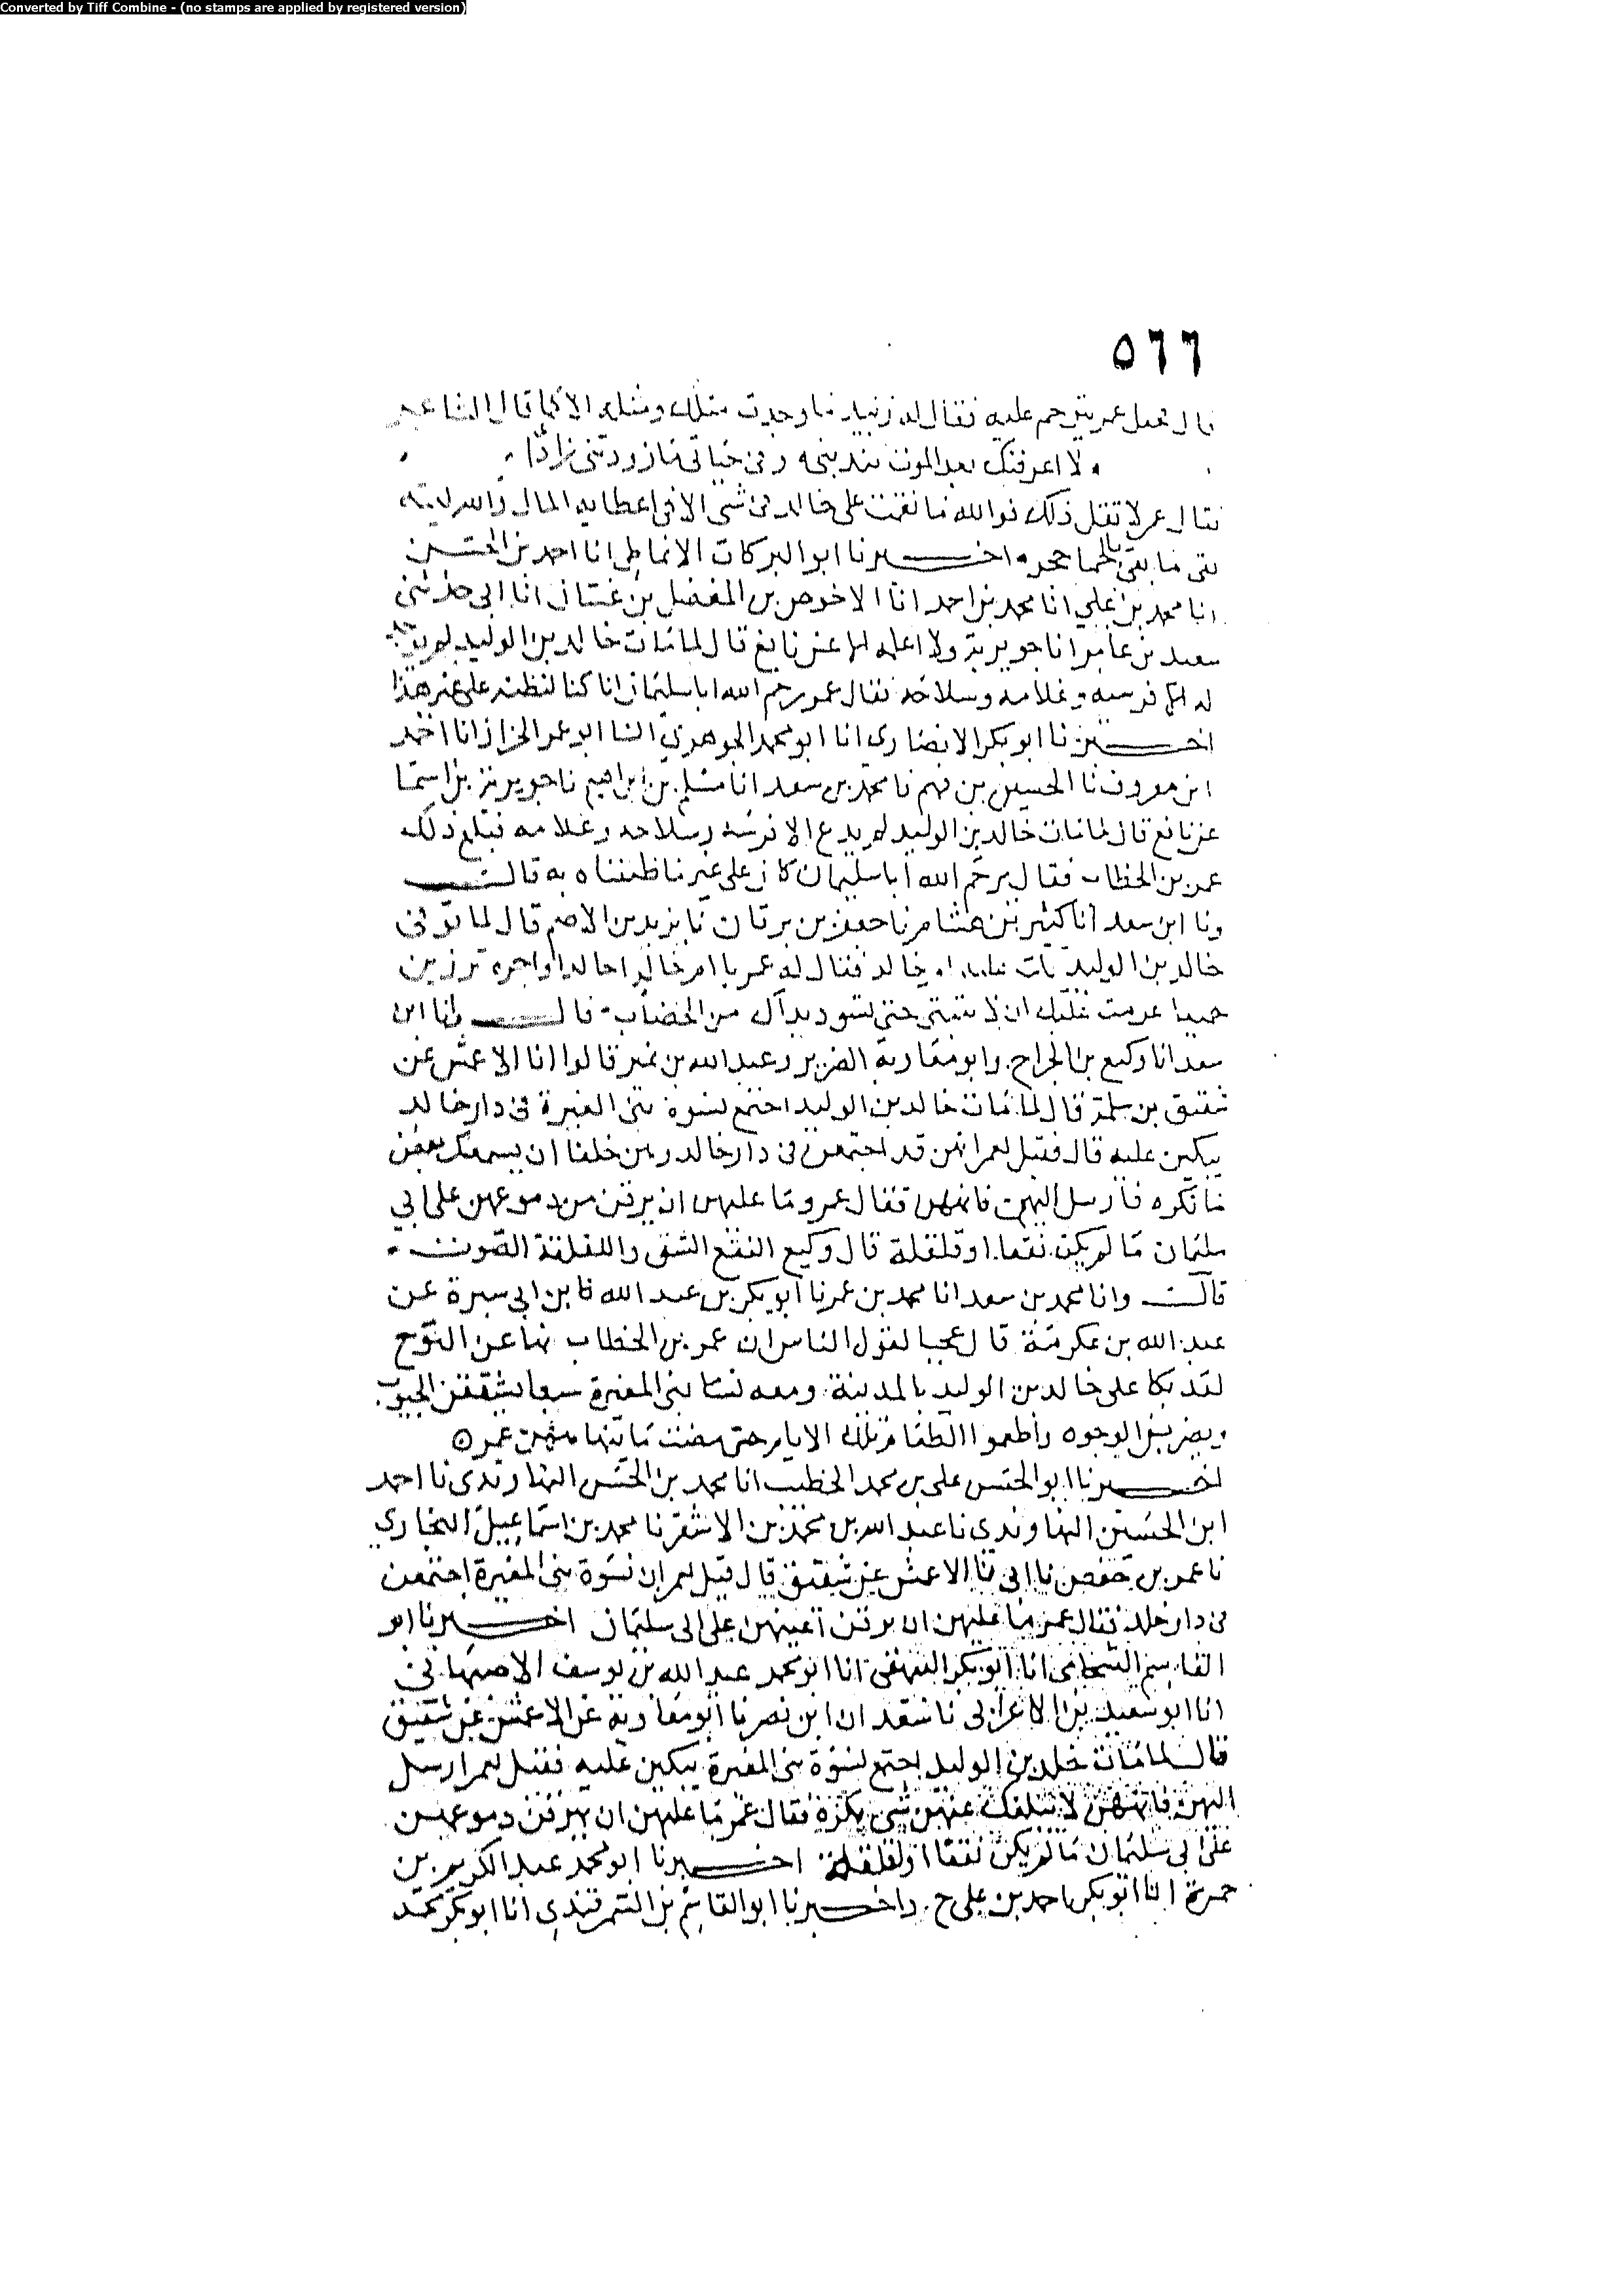 Converted by Tiff Combine - (no stamps are applied by registered version)
٥٦٦
قال فجعل عمر يترحم عليه فقال له زنبيد ما وجدت مثلك ومثله الا كما قال الشاعر
لا اعرفنك بعد الموت تندبني وفي حياتي ما زودتني زادا
فقال عمر لا تقل ذلك فوالله ما نقمت على خالد في شي الا في اعطايه المال والله
بقي ما بقي بالحما حجر اخبرنا ابو البركات الانماطي انا احمد بن الحسن
انا محمد بن علي انا محمد بن احمد انا الاحوص بن المفضل بن غسان انا ابي حدثني
سعيد بن عامر انا جويرية ولا اعلمه الا عن نافع قال لما مات خالد بن الوليد لم يوجد
له الا فرسه وغلامه وسلاحه فقال عمر رحم الله ابا سليمان انا كنا لنظنه على غير هذا
اخبرنا ابو بكر الانصاري انا ابو محمد الجوهري انا ابو عمر الخزاز انا احمد
ابن معروف نا الحسين بن فهم نا محمد بن سعد انا مسلم بن ابراهيم نا جويرية بن اسما
عن نافع قال لما مات خالد بن الوليد لم يدع الا فرسه وسلاحه وغلامه فبلغ ذلك
عمر بن الخطاب فقال يرحم الله ابا سليمان كان على غير ما ظنناه به قال
ونا ابن سعد انا كثير بن هشام نا جعفر بن برقان نا يزيد بن الاصم قال لما توفي
خالد بن الوليد بكت عليه ام خالد فقال له عمر يا ام خالد اخالدا واجره ترزين
جميعا عزمت عليك ان لا تبيتي حتى تسود يداك من الخضاب قال وانا ابن
سعد انا وكيع بن الجراح وابو معاوية الضرير وعبد الله بن نمير قالوا انا الاعمش عن
شقيق بن سلمة قال لما مات خالد بن الوليد اجتمع نسوة بني المغيرة في دار خالد
يبكين عليه قال فقيل لعمر انهن قد اجتمعن في دار خالد وهن خلقا ان يسمعنك بعض
ما تكره فارسل اليهن فانههن فقال عمر وما عليهن ان يرقن من دموعهن على ابي
سليمان ما لم يكن نقعا او لقلقة قال وكيع النقع الشق واللقلقة الصوت
قال وانا محمد بن سعد انا محمد بن عمر نا ابو بكر بن عبد الله نا بن ابي سبرة عن
عبد الله بن عكرمة قال عجبا لقول الناس ان عمر بن الخطاب نها عن النوح
لقد بكا على خالد بن الوليد بالمدينة ومعه نسا بني المغيرة سبعا يشققن الجيوب
ويضربن الوجوه واطعموا الطعام تلك الايام حتى مضت ما ينهاهن عمر
اخبرنا ابو الحسن علي بن محمد الخطيب انا محمد بن الحسن النهاوندي نا احمد
ابن الحسين النهاوندي نا عبد الله بن محمد بن الاشقر نا محمد بن اسماعيل البخاري
نا عمر بن حفص نا ابي نا الاعمش عن شقيق قال قيل لعمر ان نسوة بني المغيرة اجتمعن
في دار خالد فقال عمر ما عليهن ان يرقن اعينهن على ابي سليمان اخبرنا ابو
القاسم الشحامي انا ابو بكر البيهقي انا ابو محمد عبد الله بن يوسف الاصبهاني
انا ابو سعيد بن الاعرابي نا سعدان ابن نصر نا ابو معاوية عن الاعمش عن شقيق
قال لما مات خلد بن الوليد اجتمع نسوة بني المغيرة يبكين عليه فقيل لعمر ارسل
اليهن فانههن لا يبلغك عنهن شي تكره فقال عمر ما عليهن ان يهرقن دموعهن
على ابي سليمان ما لم يكن نقعا او لقلقة اخبرنا ابو محمد عبد الكريم بن
حمزة انا ابو بكر احمد بن علي ح واخبرنا ابو القاسم بن السمرقندي انا ابو بكر محمد